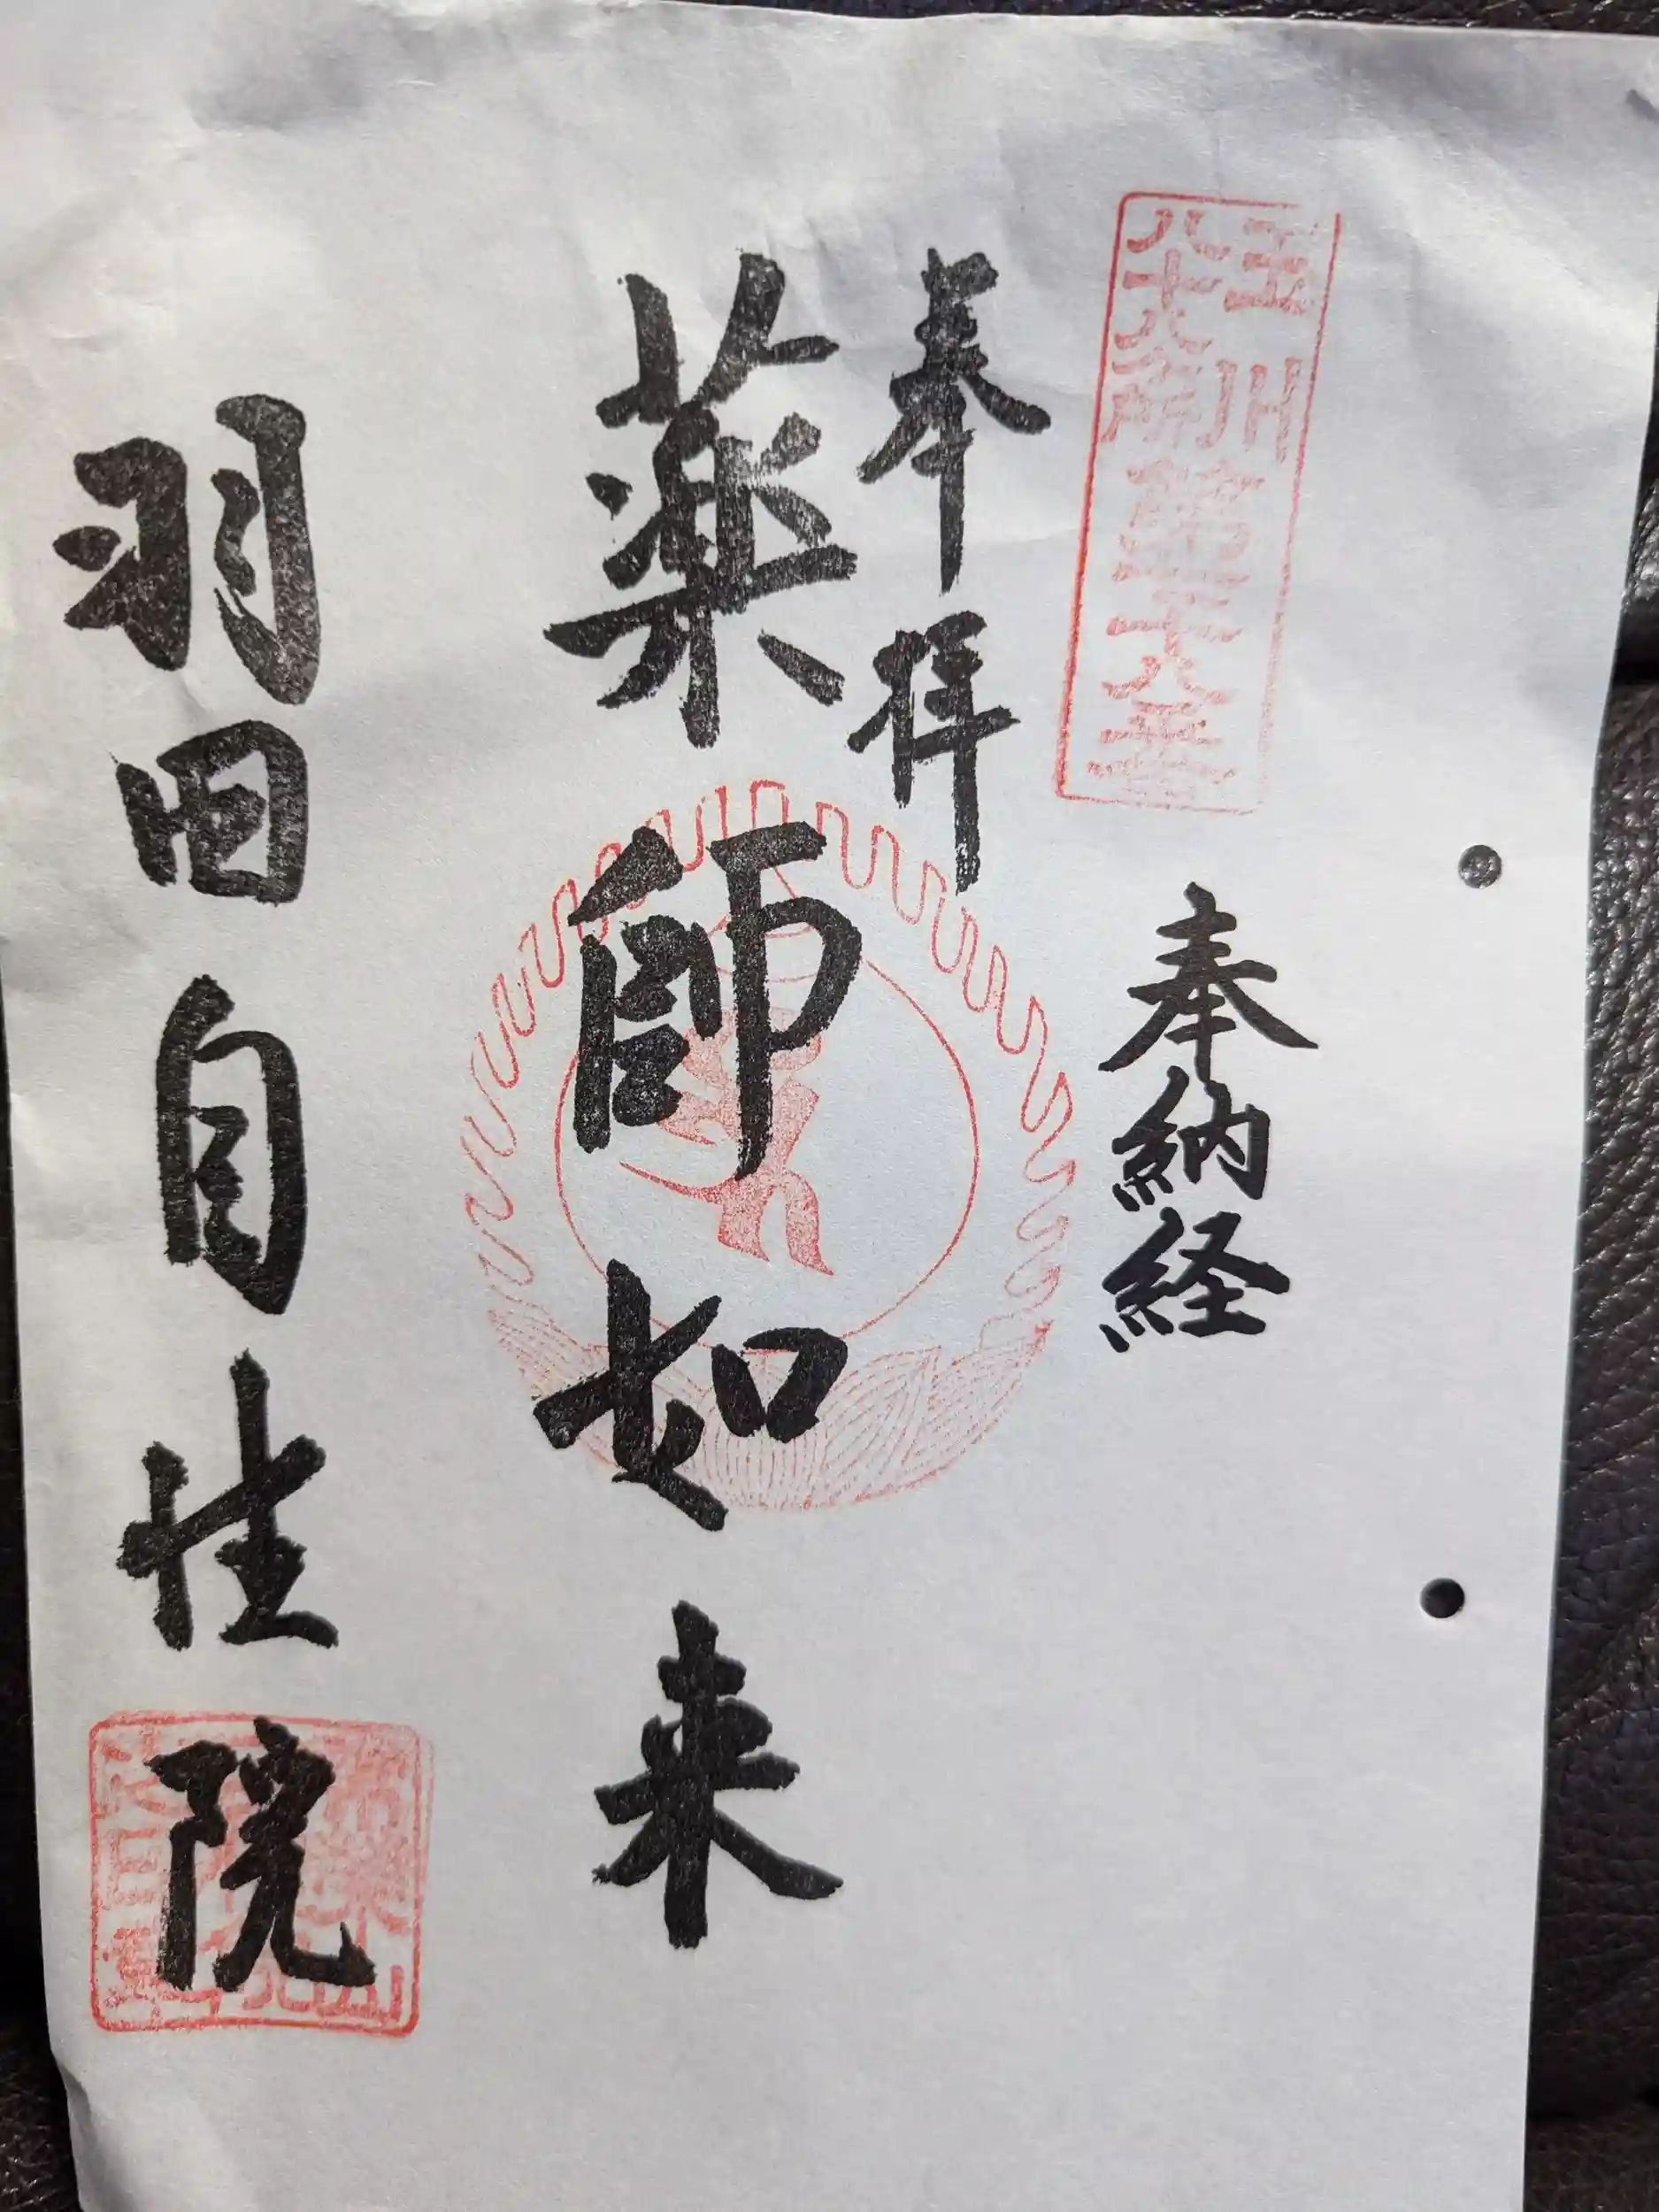 玉川
八十八ヶ所
奉納経
奉拝
薬師如来
羽田自性院